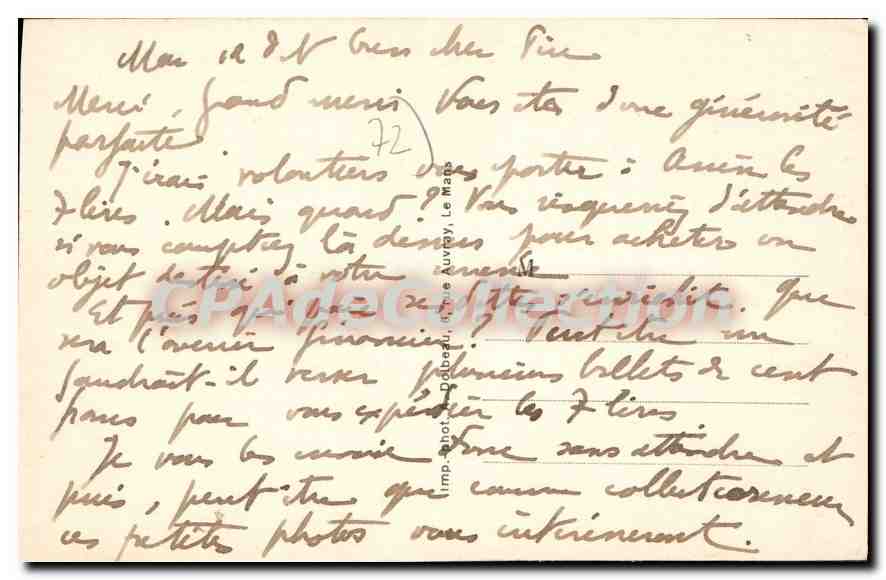 Mon 12 8 bre très cher Père
Merci, grand merci, vous êtes d'une générosité
parfaite.
72
J'irais volontiers vous porter : Assise les
7 lires. Mais quand ? Vous risqueriez d'attendre
si vous comptiez là dessus pour acheter un
objet destiné à votre
Et puis que
sera l'avenir financier ? Peut être
faudrait-il verser plusieurs billets de cent
francs pour vous expédier les 7 lires
Je vous les envoie donc sans attendre et
puis, peut être que comme collectionneur
ces petites photos vous intéresseront.
CPADeCollection
Imp.-phot. A. Dolbeau, rue Auvray, Le Mans